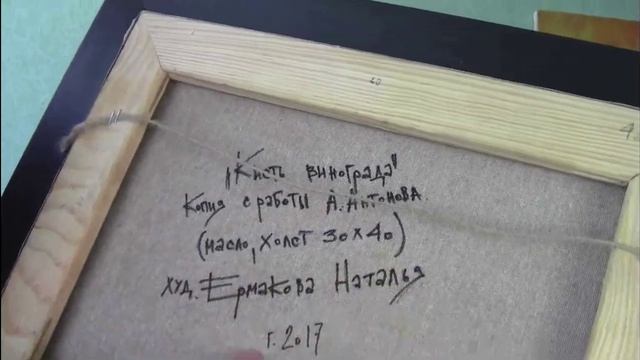 60
4
„Кисть винограда"
Копия с работы А. Антонова.
(масло, холст 30 х 40)
худ. Ермакова Наталья
г. 2017